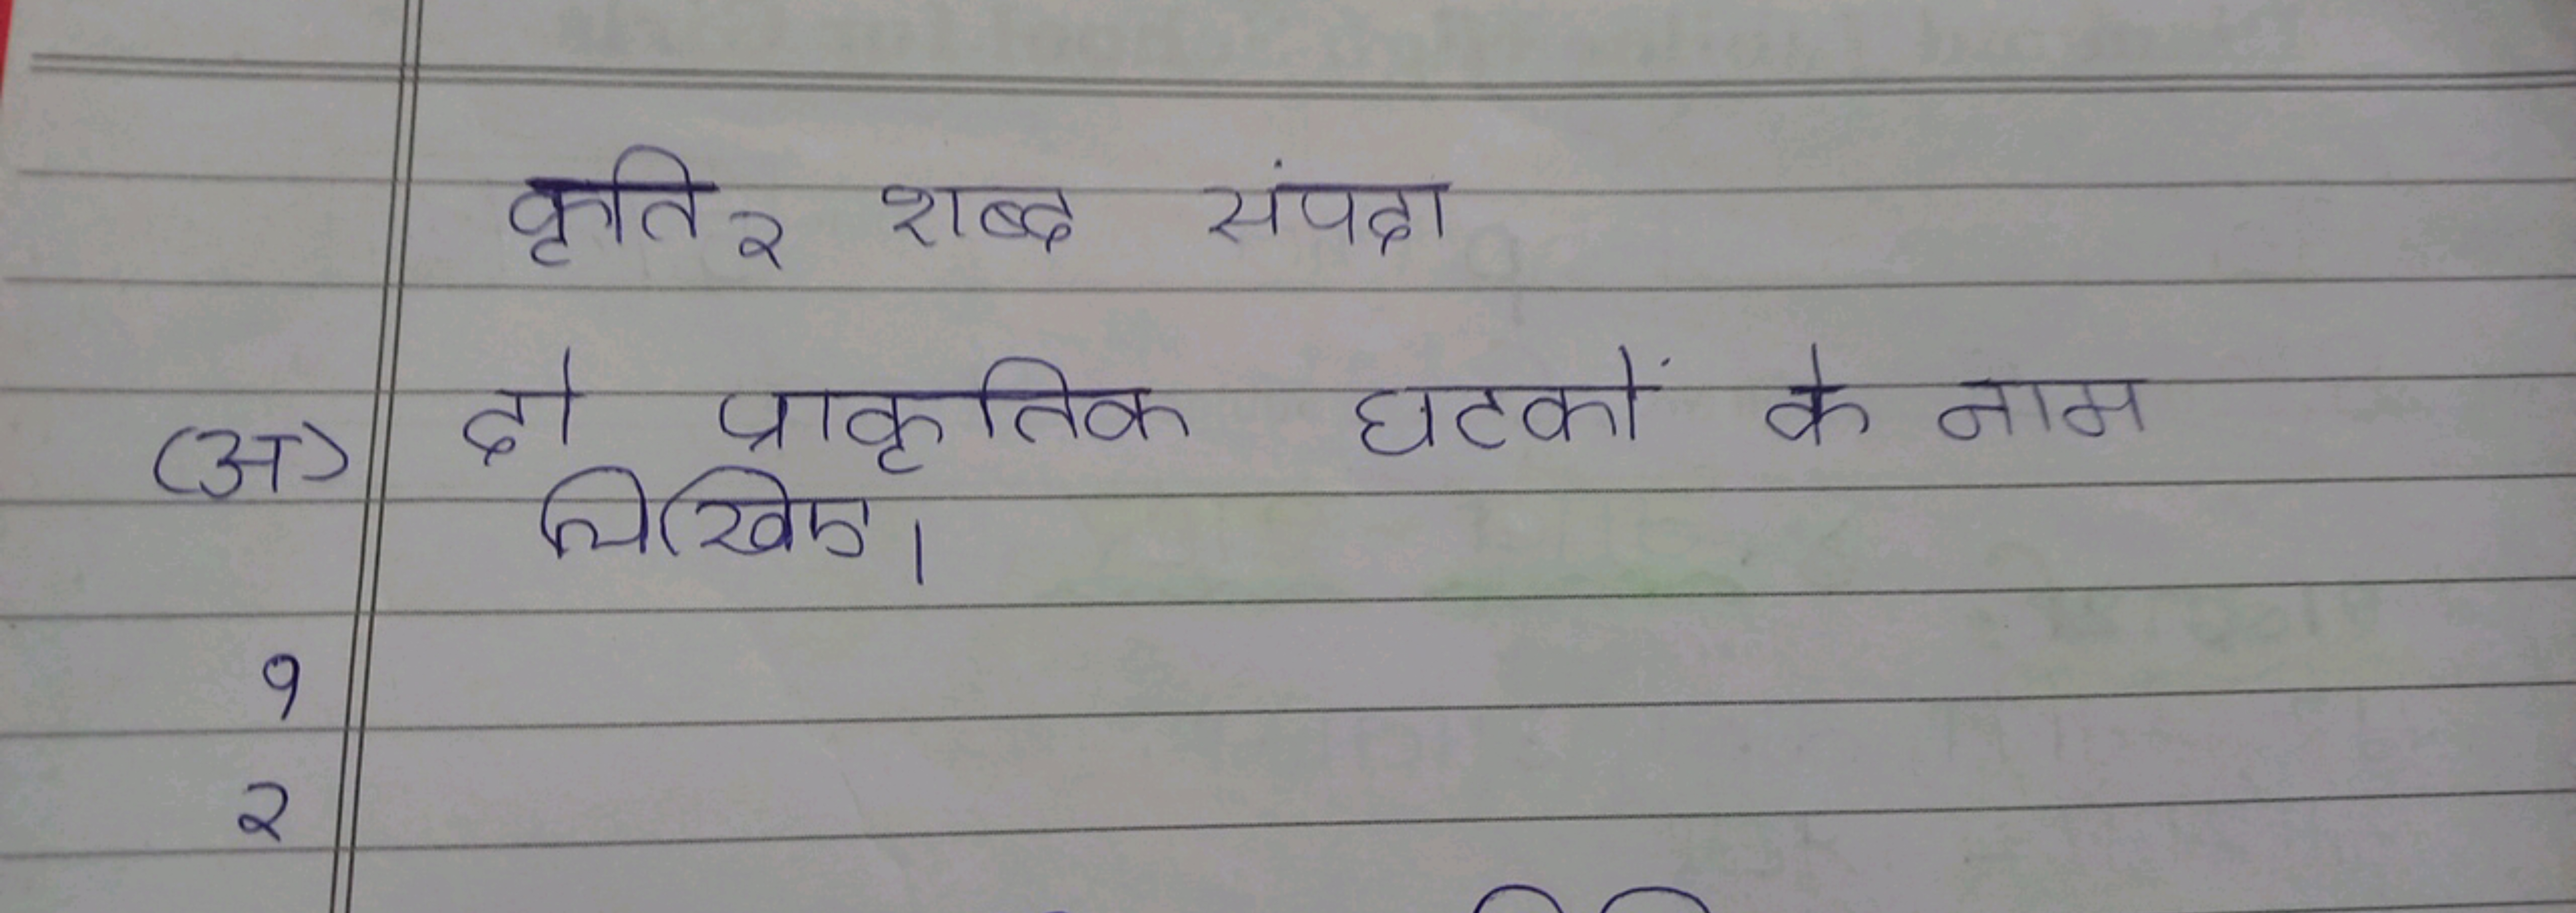 कृति २ शब्द संपदा
(अ) दो प्राकृतिक घटकों के नाम
लिखिए।
१
२